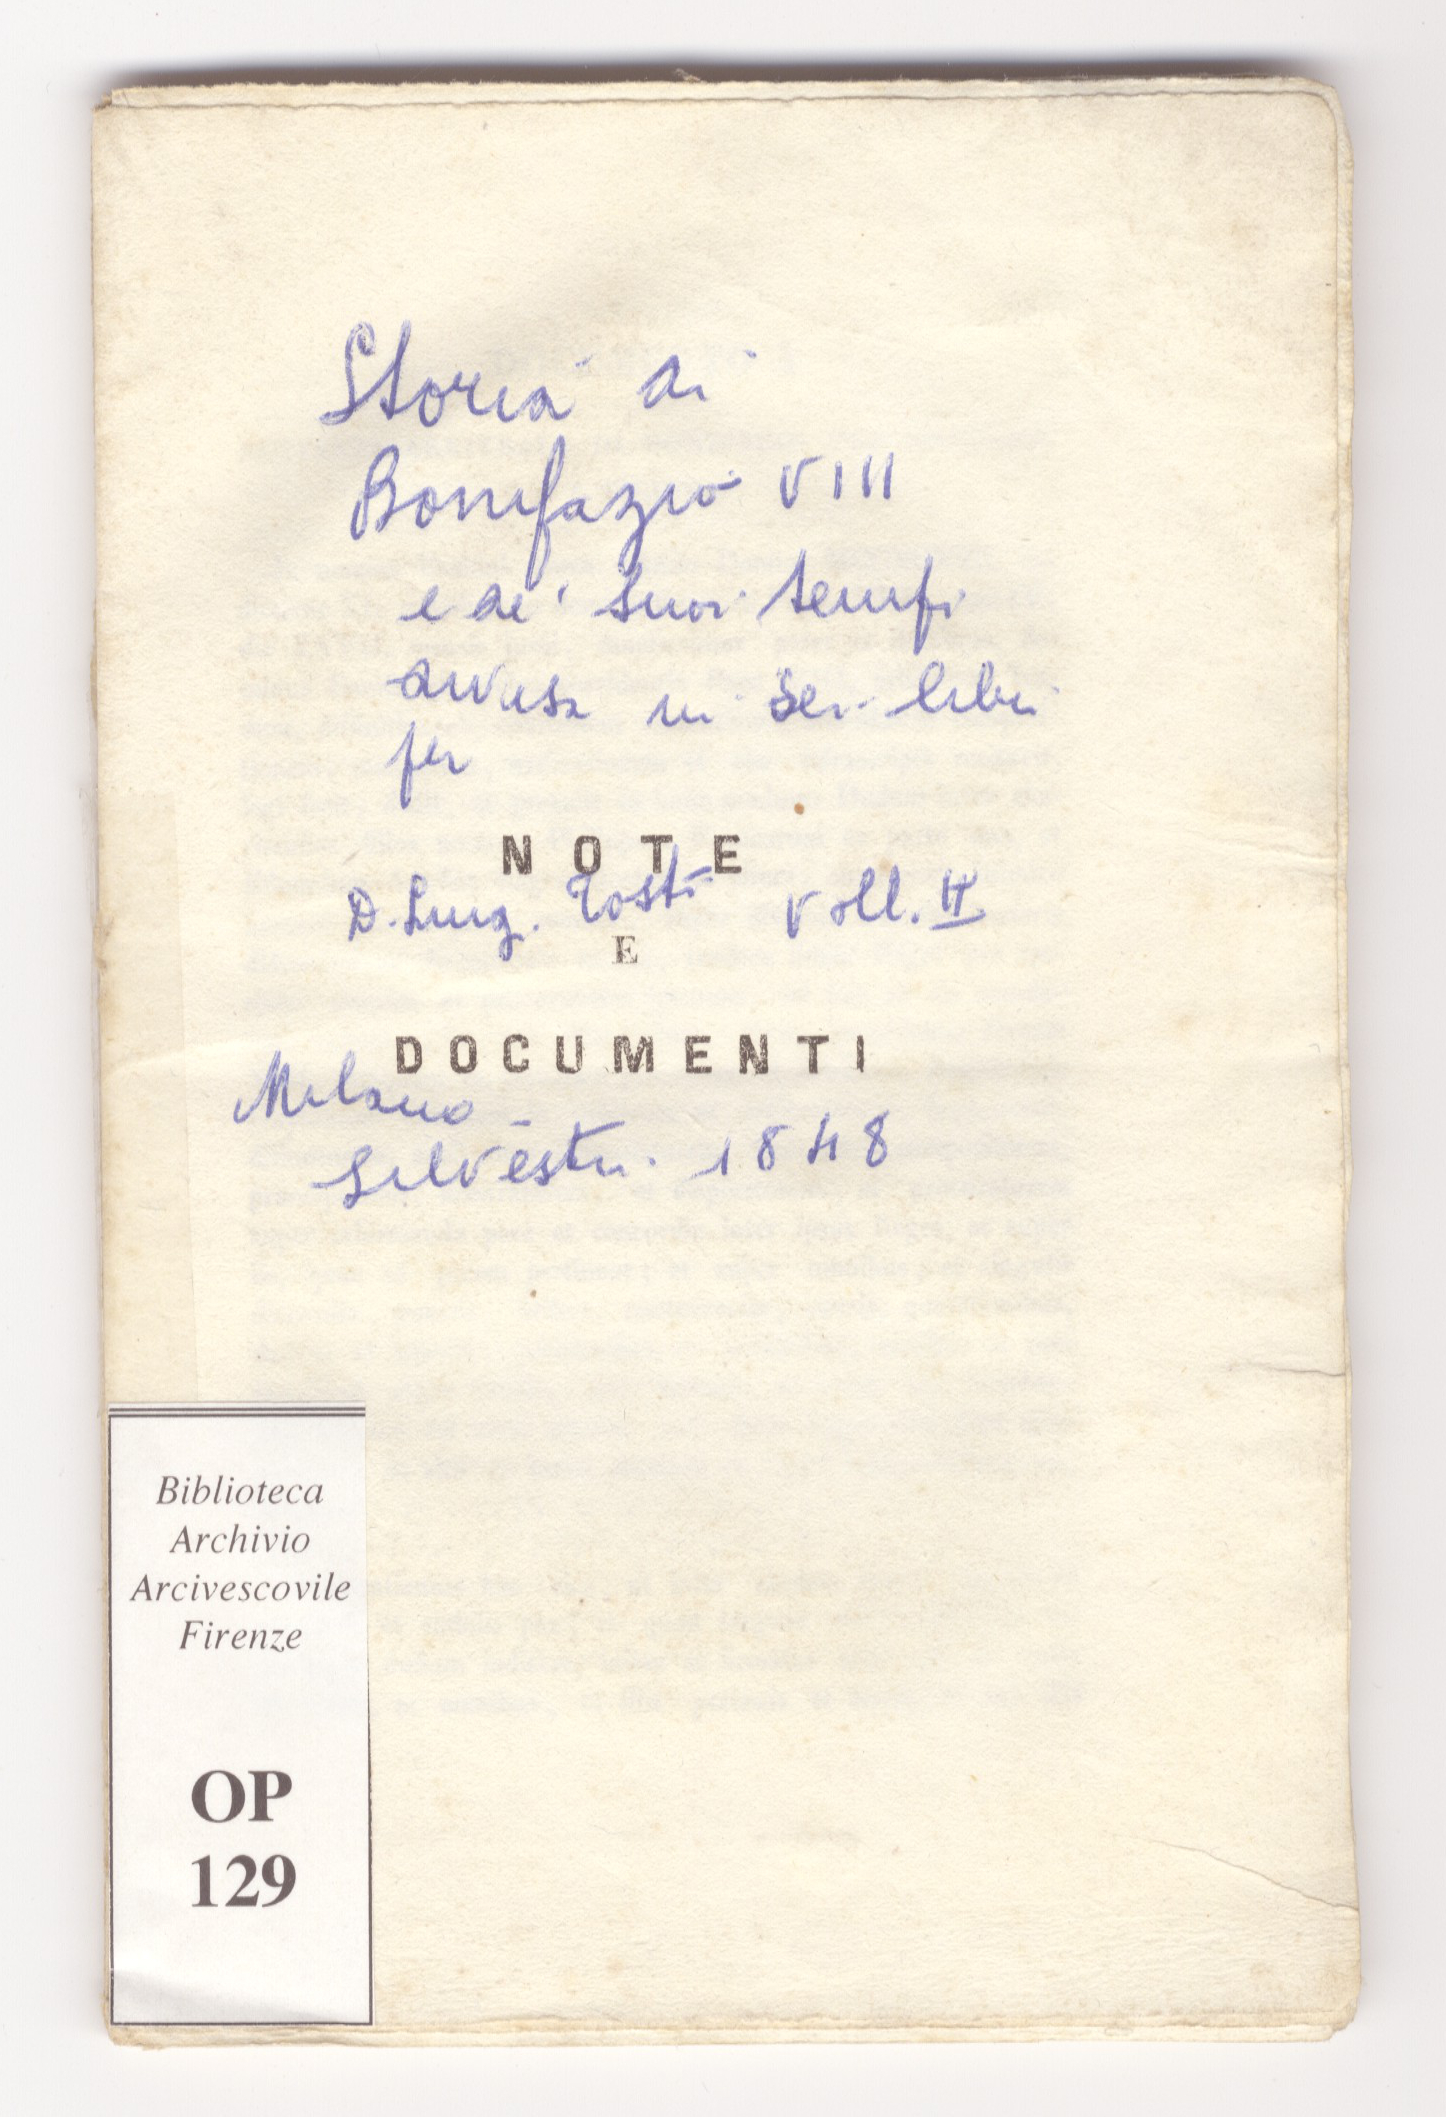 Storia di
Bonifazio VIII
e de' suoi tempi
divisa in sei libri
per
NOTE
D. Luigi Tosti Voll. II
E
DOCUMENTI
Milano
Silvestri 1848
Biblioteca
Archivio
Arcivescovile
Firenze
OP
129